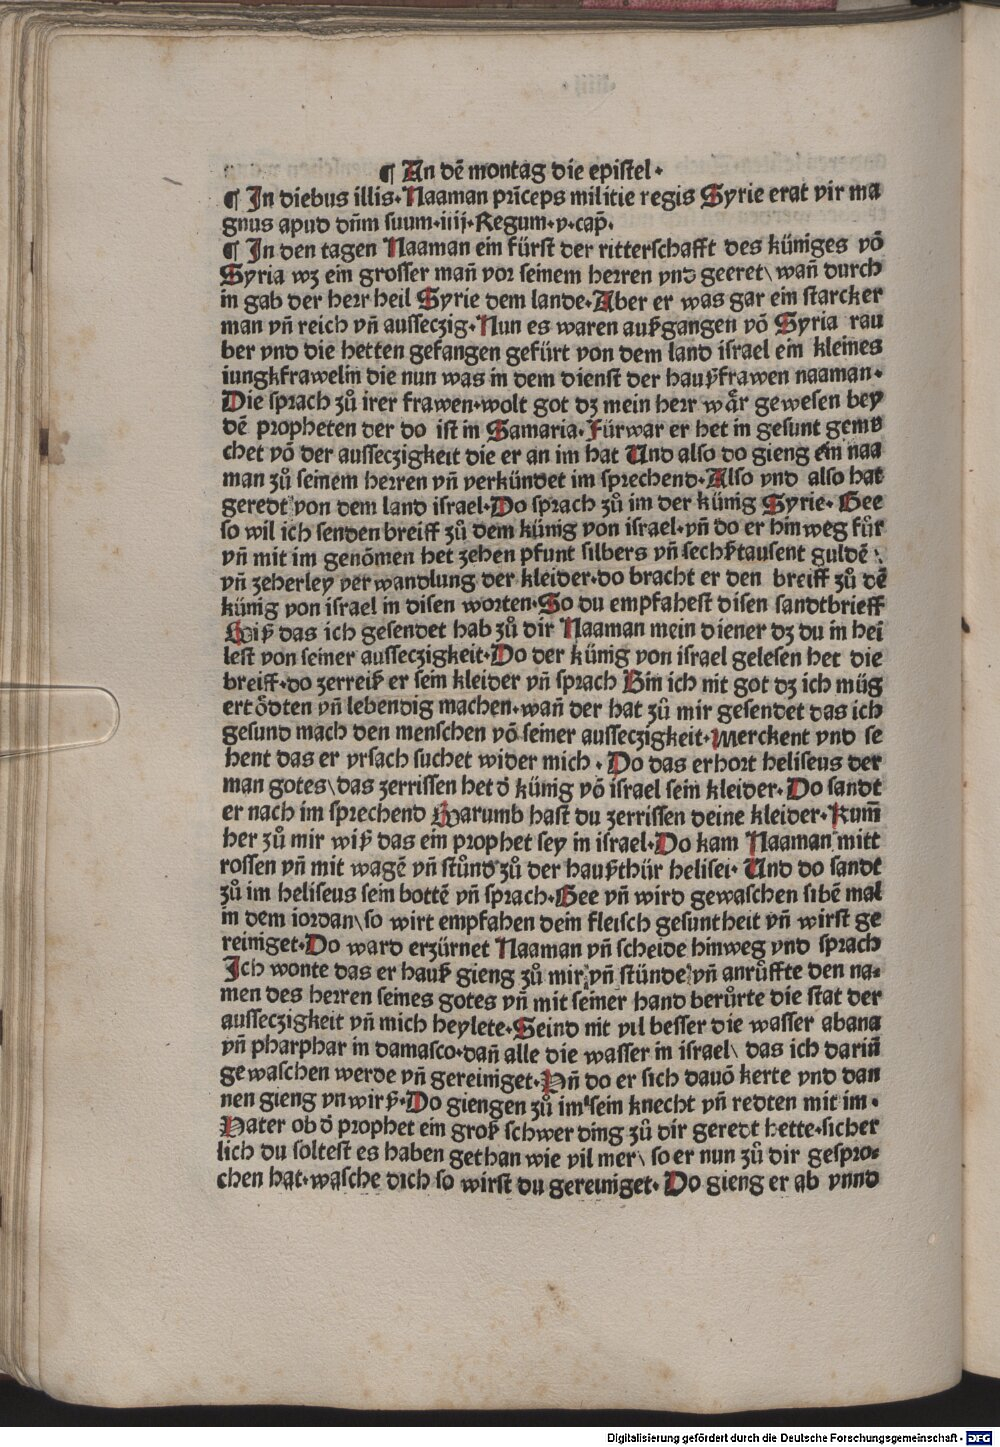 ¶ An dē montag die epistel·
¶ In diebus illis·Naaman prīceps militie regis Syrie erat vir ma
gnus apud dn̄m suum·iiij·Regum·v·cap̄.
¶ In den tagen Naaman ein fürst der ritterschafft des küniges vō
Syria wz ein grosser man̄ vor seinem herren vnd geeret\ wan̄ durch
in gab der herr heil Syrie dem lande·Aber er was gar ein starcker
man vn̄ reich vn̄ ausseczig·Nun es waren außgangen vō Syria rau
ber vnd die hetten gefangen gefürt von dem land israel ein kleines
iungkfrawelin die nun was in dem dienst der haußfrawen naaman·
Die sprach zů irer frawen·wolt got dz mein herr wår gewesen bey
dē propheten der do ist in Samaria·Fürwar er het in gesunt gema
chet vō der ausseczigkeit die er an im hat Und also do gieng ein naa
man zů seinem herren vn̄ verkündet im sprechend·Also vnd also hat
geredt von dem land israel·Do sprach zů im der künig Syrie·Gee
so wil ich senden breiff zů dem künig von israel·vn̄ do er hin weg fůr
vn̄ mit im genōmen het zehen pfunt silbers vn̄ sechßtausent guldē\
vn̄ zeherley verwandlung der kleider·do bracht er den breiff zů dē
künig von israel in disen worten·So du empfahest disen sandtbrieff
Wiß das ich gesendet hab zů dir Naaman mein diener dz du in hei
lest von seiner ausseczigkeit·Do der künig von israel gelesen het die
breiff·do zerreiß er sein kleider vn̄ sprach Bin ich nit got dz ich müg
ertödten vn̄ lebendig machen·wan̄ der hat zů mir gesendet das ich
gesund mach den menschen vō seiner ausseczigkeit·Merckent vnd se
hent das er vrsach suchet wider mich·Do das erhort heliseus der
man gotes\das zerrissen het d̄ künig vō israel sein kleider·Do sandt
er nach im sprechend Warumb hast du zerrissen deine kleider·Kum̄
her zů mir wiß das ein prophet sey in israel·Do kam Naaman mitt
rossen vn̄ mit wagē vn̄ stůnd zů der haußthür helisei·Und do sandt
zů im heliseus sein bottē vn̄ sprach·Gee vn̄ wird gewaschen sibē mal
in dem iordan\so wirt empfahen dein fleisch gesuntheit vn̄ wirst ge
reiniget·Do ward erzürnet Naaman vn̄ scheide hinweg vnd sprach
Ich wonte das er hauß gieng zů mir vn̄ stünde vn̄ anrůffte den na-
men des herren seines gotes vn̄ mit seiner hand berůrte die stat der
ausseczigkeit vn̄ mich heylete·Seind nit vil besser die wasser abana
vn̄ pharphar in damasco·dan̄ alle die wasser in israel\ das ich darin̄
gewaschen werde vn̄ gereiniget·Vn̄ do er sich dauō kerte vnd dan
nen gieng vnwirß·Do giengen zů im sein knecht vn̄ redten mit im·
Vater ob d̄ prophet ein groß schwer ding zů dir geredt hette·sicher
lich du soltest es haben gethan wie vil mer\ so er nun zů dir gespro-
chen hat·wasche dich so wirst du gereiniget·Do gieng er ab vnnd
Digitalisierung gefördert durch die Deutsche Forschungsgemeinschaft - DFG